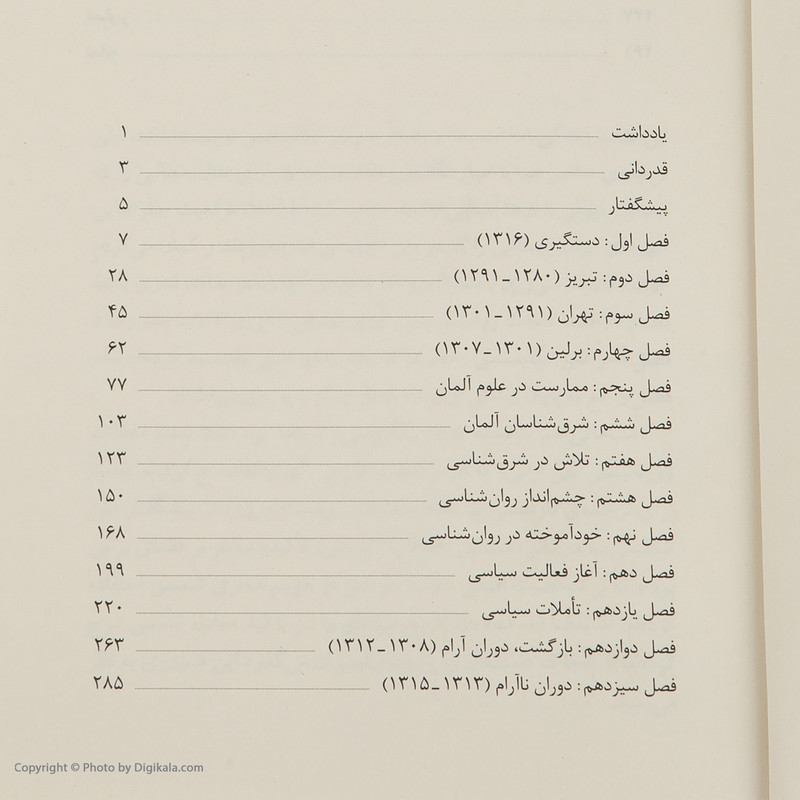 یادداشت ۱
قدردانی ۳
پیشگفتار ۵
فصل اول: دستگیری (۱۳۱۶) ۷
فصل دوم: تبریز (۱۲۸۰ـ۱۲۹۱) ۲۸
فصل سوم: تهران (۱۲۹۱ـ۱۳۰۱) ۴۵
فصل چهارم: برلین (۱۳۰۱ـ۱۳۰۷) ۶۲
فصل پنجم: ممارست در علوم آلمان ۷۷
فصل ششم: شرق‌شناسان آلمان ۱۰۳
فصل هفتم: تلاش در شرق‌شناسی ۱۲۳
فصل هشتم: چشم‌انداز روان‌شناسی ۱۵۰
فصل نهم: خودآموخته در روان‌شناسی ۱۶۸
فصل دهم: آغاز فعالیت سیاسی ۱۹۹
فصل یازدهم: تأملات سیاسی ۲۲۰
فصل دوازدهم: بازگشت، دوران آرام (۱۳۰۸ـ۱۳۱۲) ۲۶۳
فصل سیزدهم: دوران ناآرام (۱۳۱۳ـ۱۳۱۵) ۲۸۵
Copyright © Photo by Digikala.com